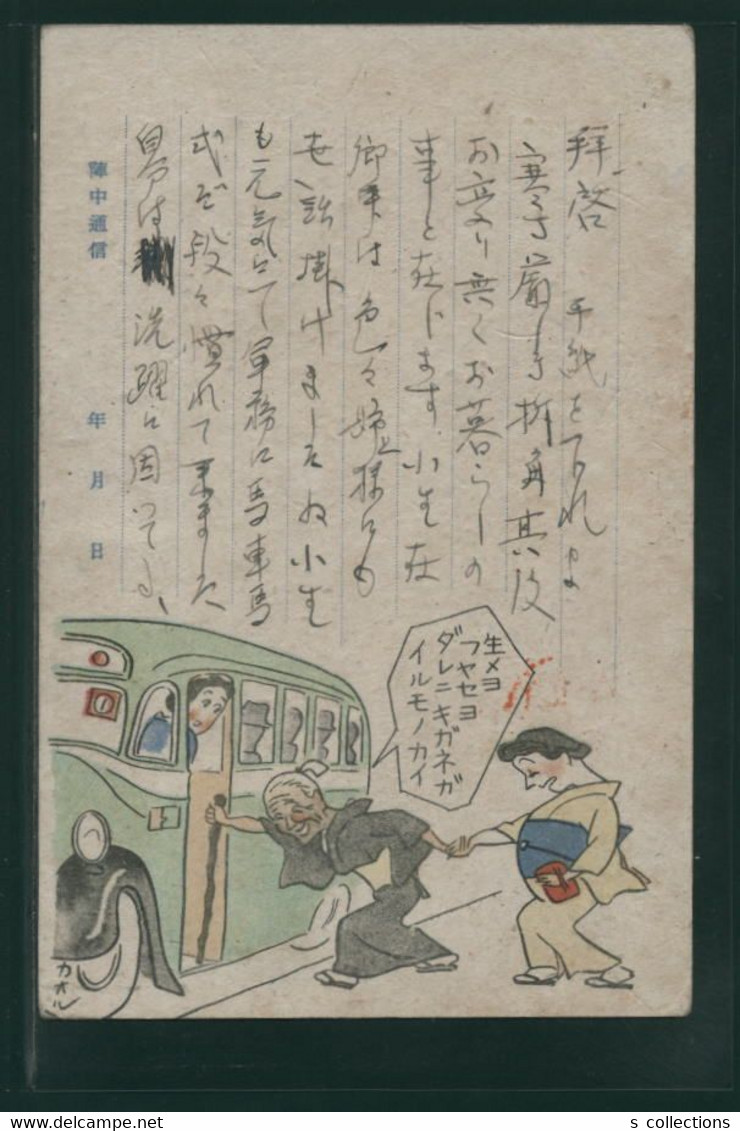 拝啓 手紙を下れま
寒さ厳しき折角其後
お変り無くお暮らしの
事と存じます 小生在
郷中は色々姉上様にも
世話掛けましたね 小生
も元気にて軍務に馬車馬
式だ 段々慣れて来ました
は 洗濯に困って
陣中通信 年 月 日
生メヨ
フヤセヨ
ダレニキガネガ
イルモノカイ
カオル
s collections